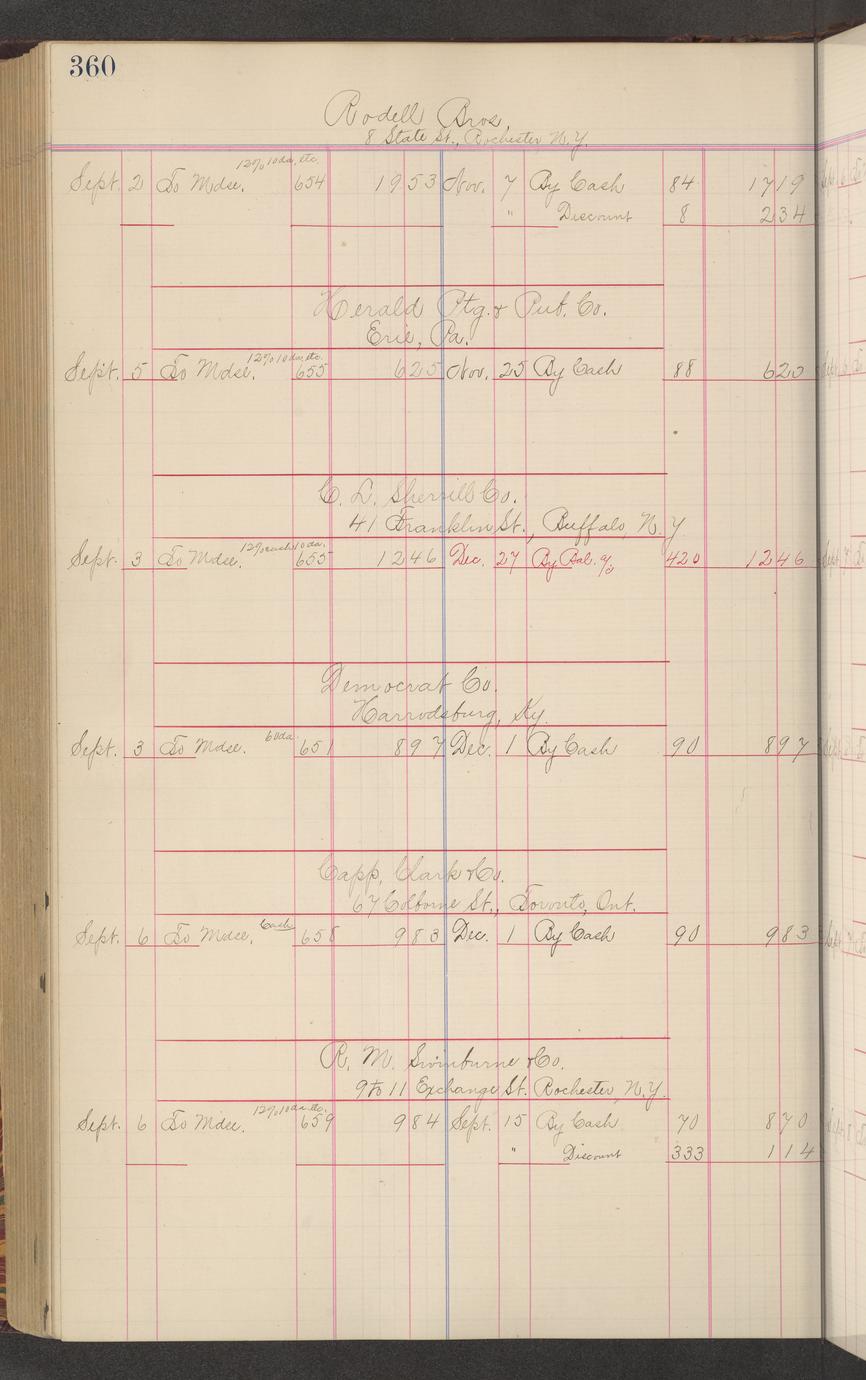 360
Rodell Bros.
8 State St., Rochester N.Y.
12% 10 da, etc.
Sept. 2 To Mdse. 654 1953 Nov. 7 By Cash 84 1719
" Discount 8 234
Herald Ptg. & Pub. Co.
Erie, Pa.
12% 10 da, etc.
Sept. 5 To Mdse. 655 625 Nov. 25 By Cash 88 625
C. L. Sherrill Co.
41 Franklin St., Buffalo, N.Y
12% cash 10 da.
Sept. 3 To Mdse. 655 1246 Dec. 27 By Bal. 420 1246
Democrat Co.
Harrodsburg, Ky.
60 da.
Sept. 3 To Mdse. 651 897 Dec. 1 By Cash 90 897
Capp, Clark & Co.
67 Colborne St., Toronto, Ont.
Cash
Sept. 6 To Mdse. 658 983 Dec. 1 By Cash 90 983
R. M. Swinburne & Co.
9 to 11 Exchange St. Rochester, N.Y.
12% 10 da. etc.
Sept. 6 To Mdse. 659 984 Sept. 15 By Cash 70 870
" Discount 333 114